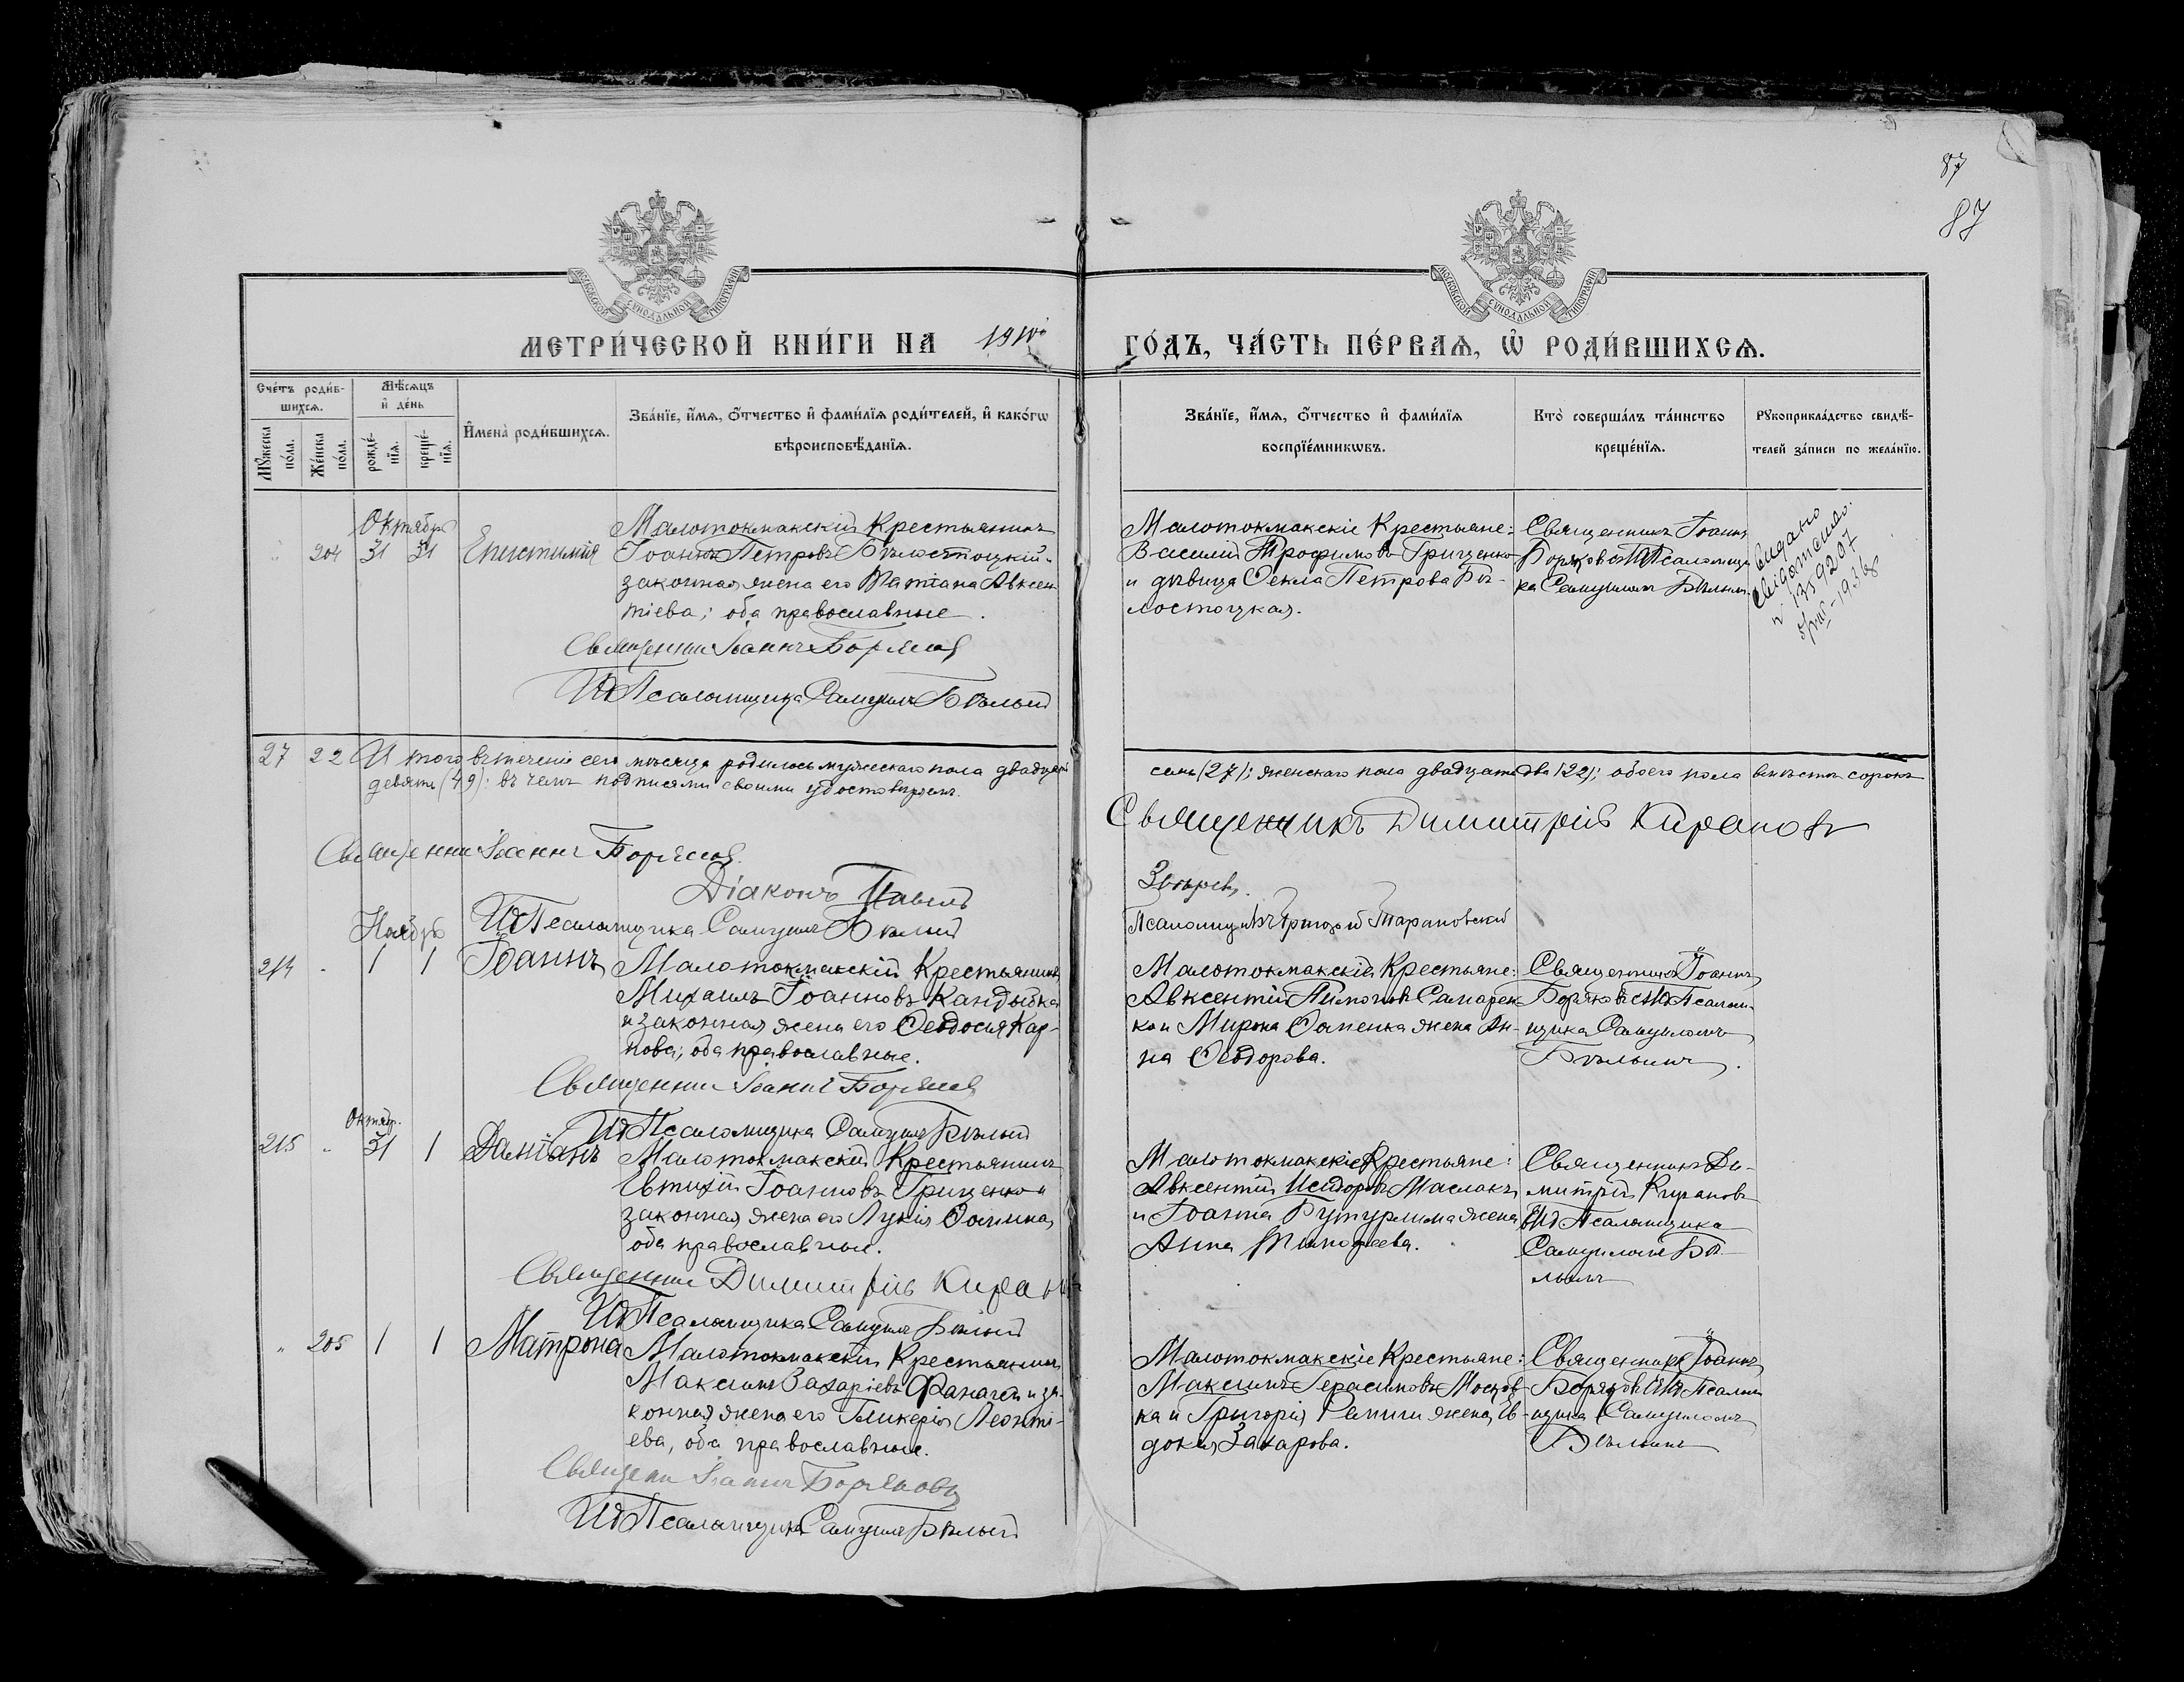 87
87
МОСКОВСКОЙ СѴНОДАЛЬНОЙ ТИПОГРАФІИ
МОСКОВСКОЙ СѴНОДАЛЬНОЙ ТИПОГРАФІИ
МЕТРИ́ЧЕСКОЙ КНИ́ГИ НА 1910й ГО́ДЪ, ЧА́СТЬ ПЕ́РВАѦ, Ѡ РОДИ́ВШИХСѦ.
Сче́тъ роди́в-
шихсѧ.
Мꙋ́жеска по́ла.
Же́нска по́ла.
Мѣ́сѧцъ
и҆ де́нь
рожде́-
нїѧ.
креще́-
нїѧ.
И҆мена̀ роди́вшихсѧ.
Зва́нїе, и҆́мѧ, ѻ҆́тчество и҆ фами́лїѧ роди́телей, и҆ како́гѡ
вѣроисповѣ́данїѧ.
Зва́нїе, и҆́мѧ, ѻ҆́тчество и҆ фами́лїѧ
воспрїе́мникѡвъ.
Кто̀ соверша́лъ та́инство
креще́нїѧ.
Рꙋкоприкла́дство свидѣ́-
телей за́писи по жела́нїю.
Октябрь
204 31 31 Епистимія
Малотокмакскій Крестьянинъ
Іоаннъ Петровъ Бѣлостоцкій и
законная жена его Татіана Авксен
тіева; оба православные.
Священникъ Іоаннъ Боряковъ
ИдПсаломщика Самуилъ Бѣлый
Малотокмакскіе Крестьяне:
Василій Трофимовъ Грищенко
и дѣвица Ѳекла Петрова Бѣ-
лостоцкая.
Священникъ Іоаннъ
Боряковъ ИдПсаломщи
ка Самуиломъ Бѣлым.
Видано
свідоцтво
№ 1359207
27 22 Итого въ теченіе сего мѣсяца родилось мужескаго пола двадцать
семь (27); женскаго пола двадцать два (22); обоего пола вмѣстѣ сорокъ
девять (49): въ чемъ подписями своими удостовѣряемъ.
Священникъ Димитрій Кирановъ
Священникъ Іоаннъ Боряковъ
Діаконъ Павелъ Звѣревъ.
ИдПсаломщика Самуилъ Бѣлый
Псаломщикъ Григорій Тарановскій
Ноябрь
214 - 1 1 Іоаннъ
Малотокмакскій Крестьянинъ
Михаилъ Іоанновъ Кандыбка
и законная жена его Ѳеодосія Кар-
пова; оба православные.
Священникъ Іоаннъ Боряковъ
ИдПсаломщика Самуилъ Бѣлый
Малотокмакскіе Крестьяне:
Авксентій Пимоновъ Самарен-
ко и Мирона Ѳоменка жена Ан-
на Ѳеодорова.
Священникъ Іоаннъ
Боряковъ съ Ид Псалом-
щика Самуиломъ
Бѣлымъ.
Октябр.
215 " 31 1 Даміанъ
Малотокмакскій Крестьянинъ
Евтихій Іоанновъ Грищенко и
законная жена его Лукія Ѳомина,
оба православные.
Священникъ Димитрій Кирановъ
ИдПсаломщика Самуилъ Бѣлый
Малотокмакскіе Крестьяне:
Авксентій Исидоровъ Маслакъ
и Іоанна Бутурлима жена
Анна Тимофеева.
Священникъ Ди-
митрій Кирановъ
съ Ид Псаломщика
Самуиломъ Бѣ-
лымъ
" 205 1 1 Матрона
Малотокмакскій Крестьянинъ
Максимъ Захаріевъ Фаначей и за-
конная жена его Гликерія Леонті-
ева, оба православные.
Священникъ Іоаннъ Боряковъ
ИдПсаломщика Самуилъ Бѣлый
Малотокмакскіе Крестьяне:
Максимъ Герасимовъ Москов-
ка и Григорія Репиги жена, Ев-
докія Захарова.
Священникъ Іоаннъ
Боряковъ съ Ид Псалом-
щика Самуиломъ
Бѣлымъ